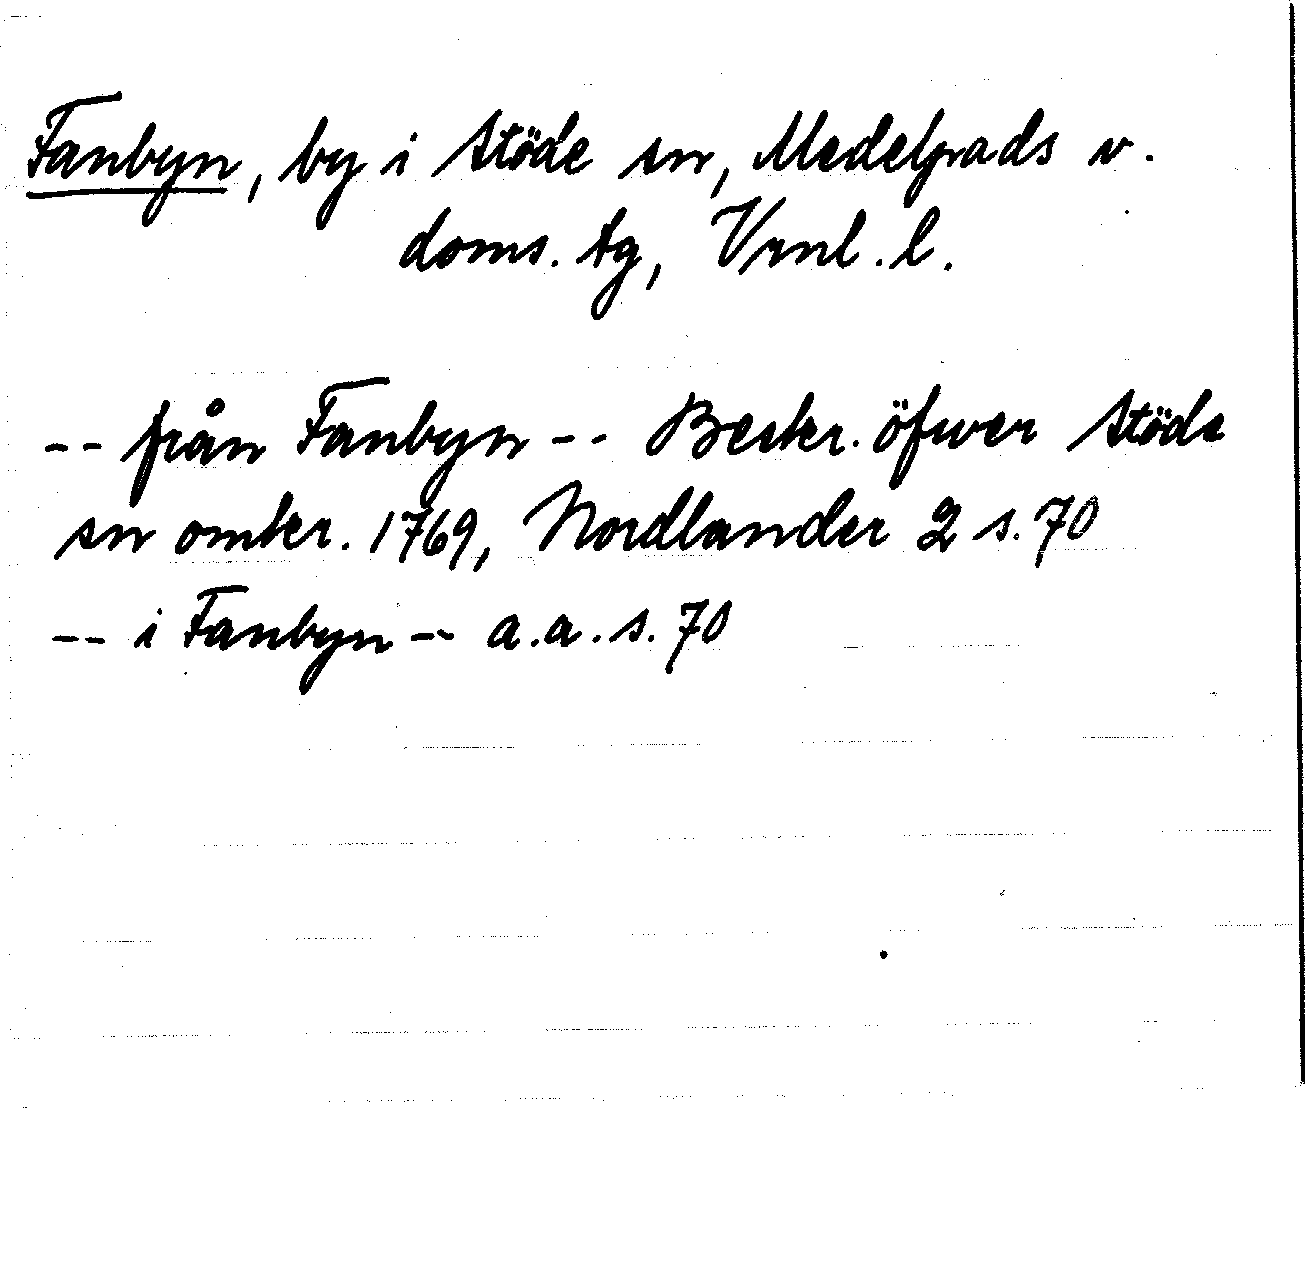 Fanbyn, by i Stöde sn, Medelpads v.
doms. tg, Vrnl. l.
-- från Fanbyn -- Beskr. öfwer Stöde
sn omkr. 1769, Nordlander 2 s. 70
-- i Fanbyn -- a. a. s. 70